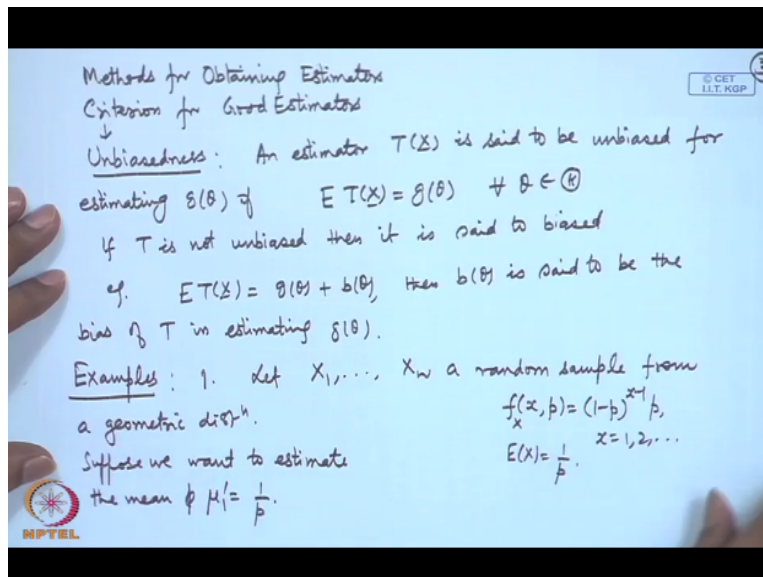 Methods for Obtaining Estimators
Criterion for Good Estimators
↓
Unbiasedness : An estimator T(X) is said to be unbiased for
estimating g(θ) if E T(X) = g(θ) ∀ θ ∈ Ⓗ
If T is not unbiased then it is said to biased
If. E T(X) = g(θ) + b(θ), then b(θ) is said to be the
bias of T in estimating g(θ).
Examples : 1. Let X₁, ..., Xₙ a random sample from
a geometric distⁿ.
f_X(x, p) = (1-p)^{x-1} p,
x = 1, 2, ...
Suppose we want to estimate
E(X) = 1/p.
the mean μ₁' = 1/p.
© CET
I.I.T. KGP
NPTEL